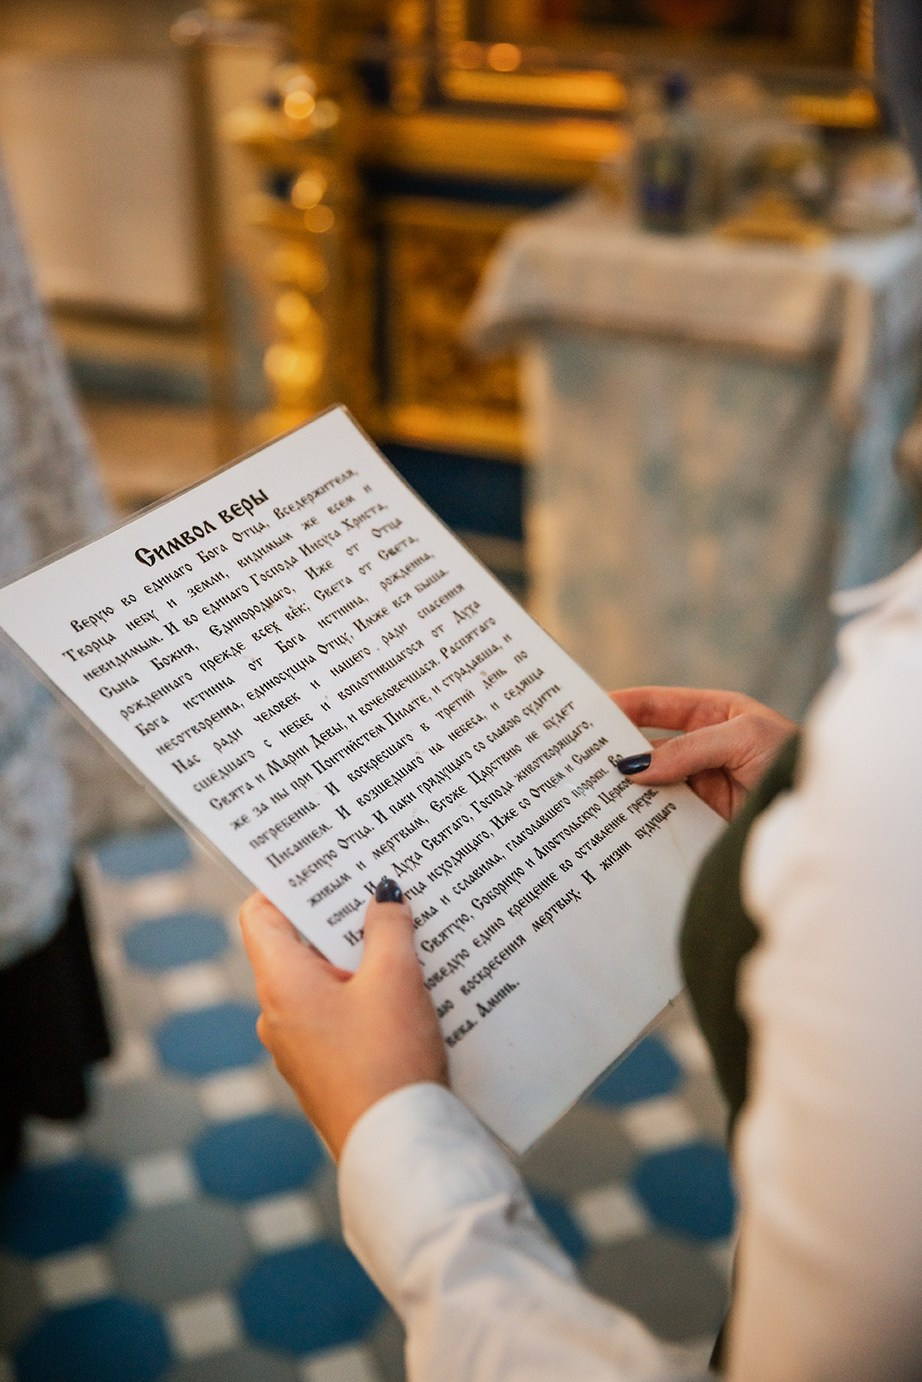 Символ веры
Верую во единаго Бога Отца, Вседержителя,
Творца небу и земли, видимым же всем и
невидимым. И во единаго Господа Иисуса Христа,
Сына Божия, Единороднаго, Иже от Отца
рожденнаго прежде всех век; Света от Света,
Бога истинна от Бога истинна, рожденна,
несотворенна, единосущна Отцу, Имже вся быша.
Нас ради человек и нашего ради спасения
сшедшаго с небес и воплотившагося от Духа
Свята и Марии Девы, и вочеловечшася. Распятаго
же за ны при Понтийстем Пилате, и страдавша, и
погребенна. И воскресшаго в третий день по
Писанием. И возшедшаго на небеса, и седяща
одесную Отца. И паки грядущаго со славою судити
живым и мертвым, Егоже Царствию не будет
конца. И Духа Святаго, Господа животворящаго,
исходящаго, Иже со Отцем и Сыном
и сславима, глаголавшаго пророки. Во
Святую, Соборную и Апостольскую
едино крещение во оставление
воскресения мертвых. И жизни будущаго
века. Аминь.